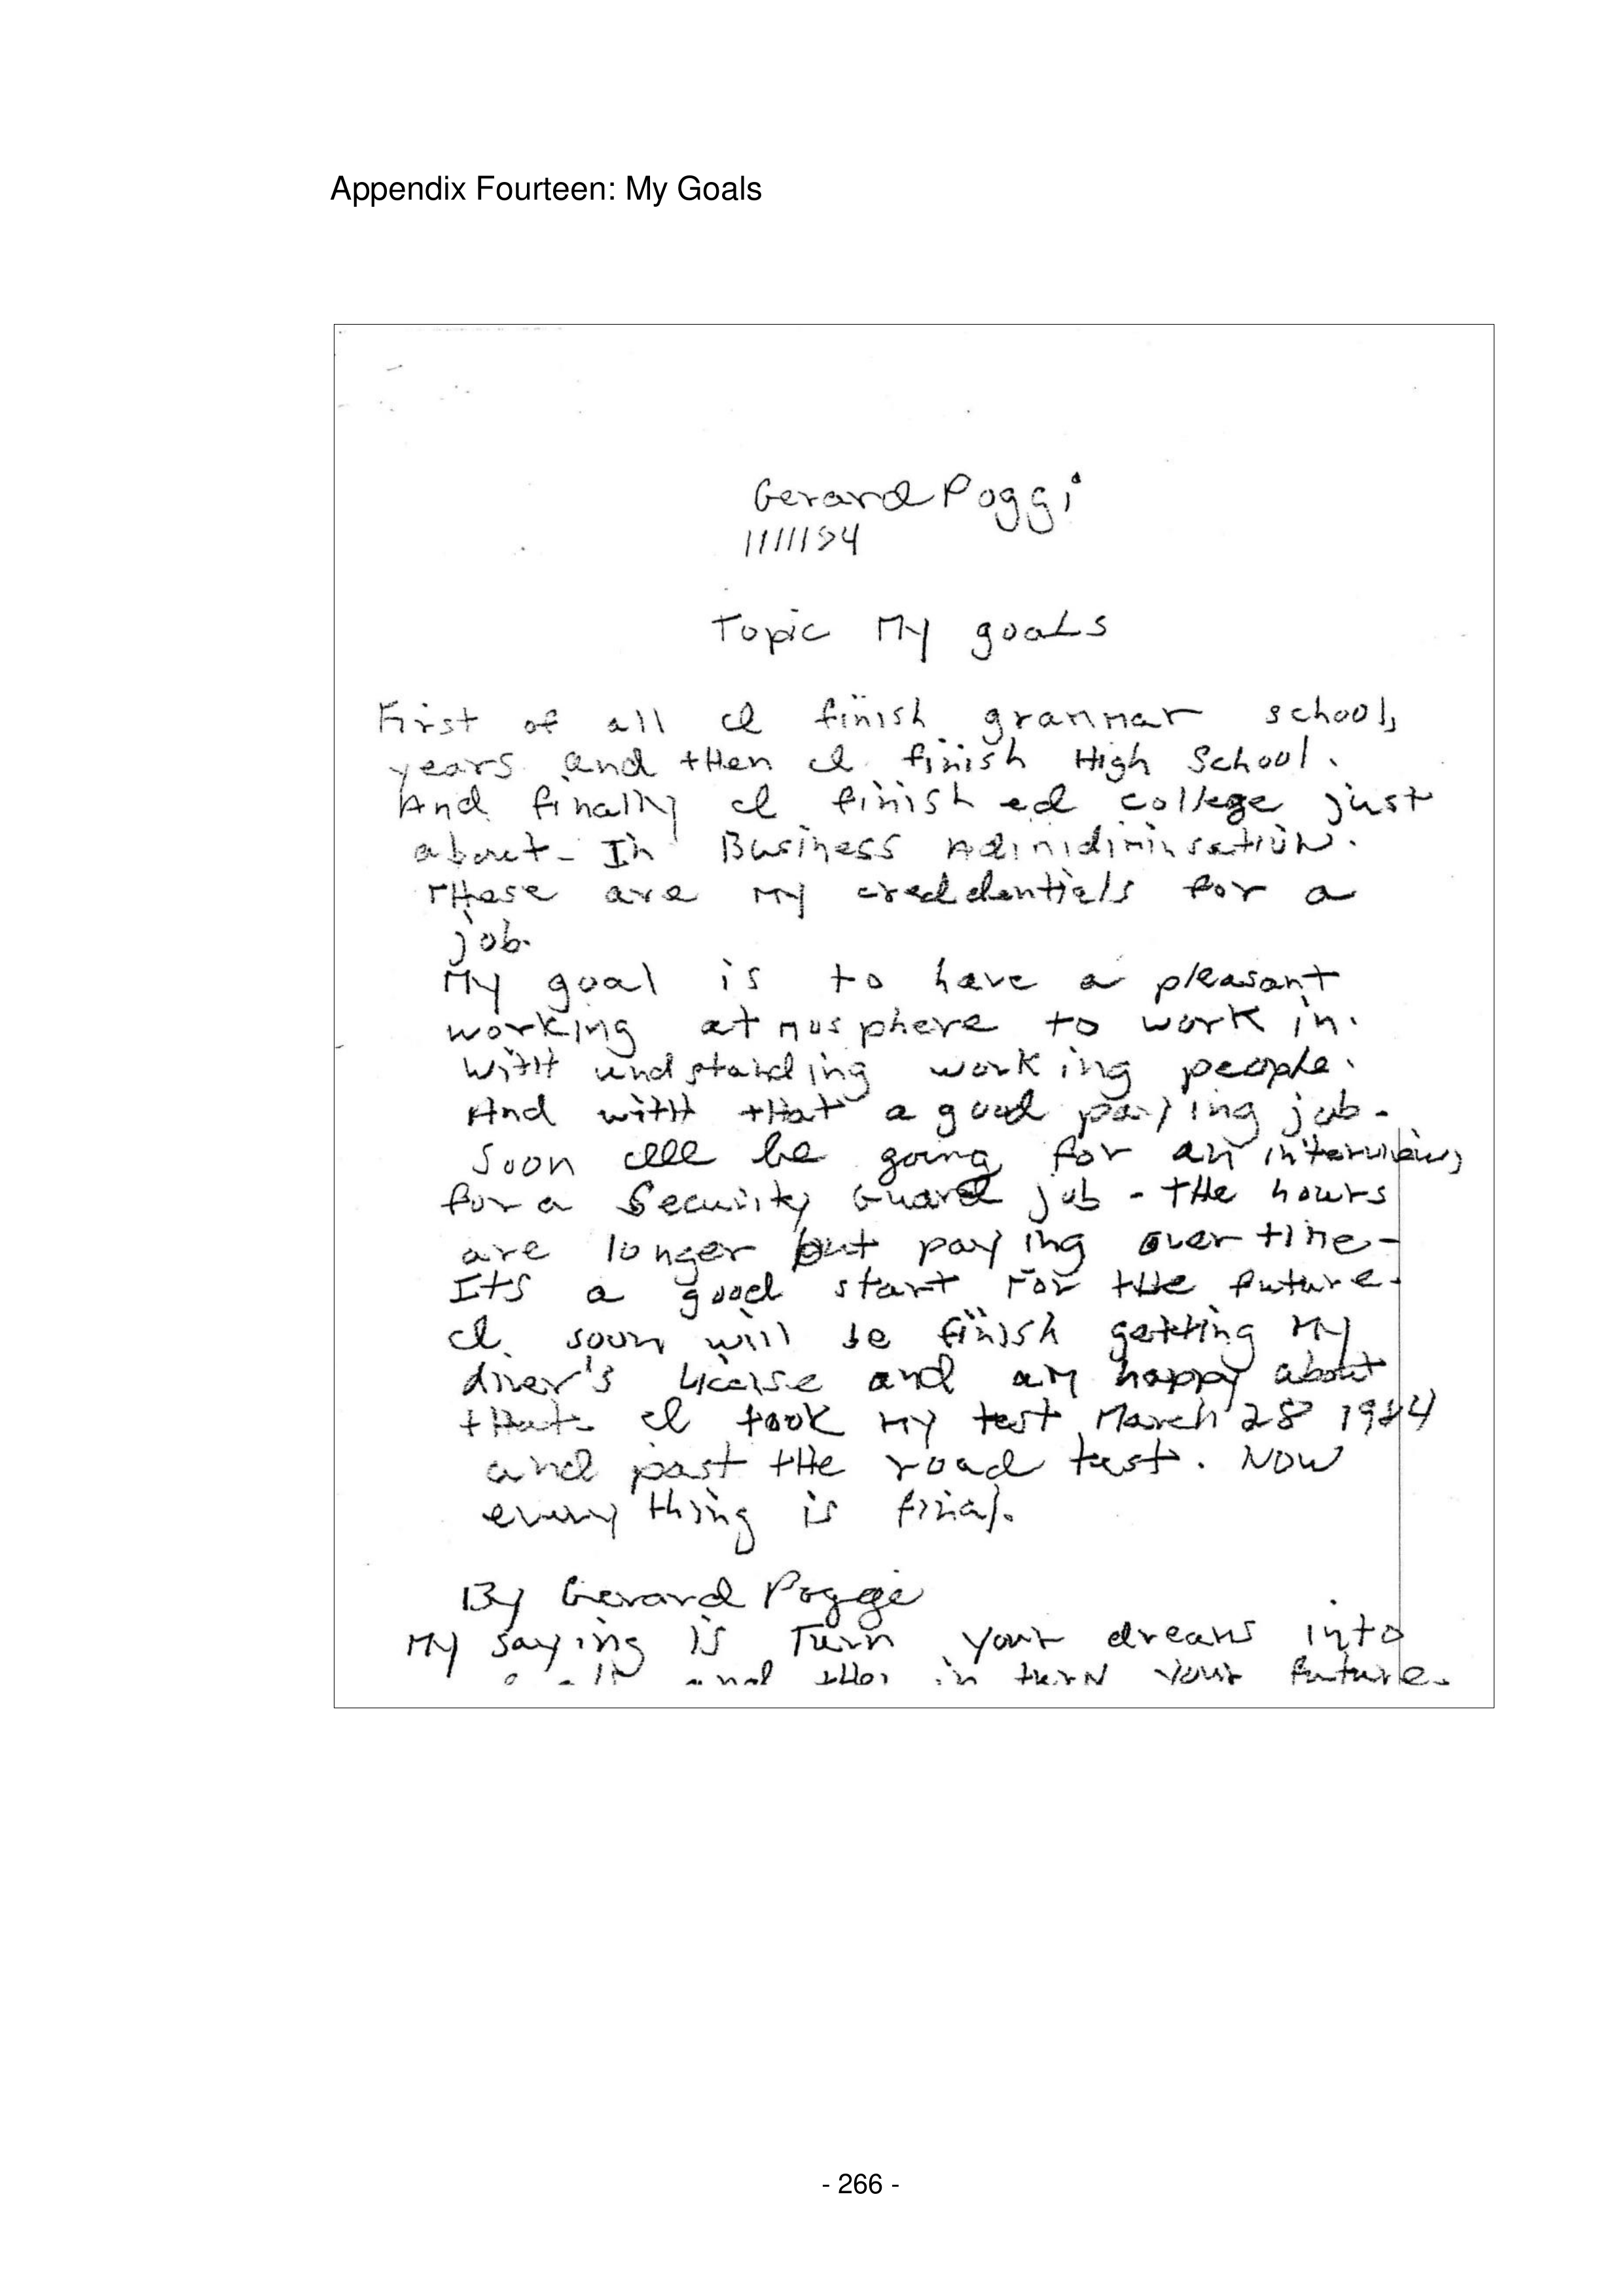 Appendix Fourteen: My Goals
Gerard Poggi
11/11/84
Topic My goals
First of all I finish grammar school,
years and then I finish High School.
And finally I finish ed college just
about. In Business
These are my creddentials for a
job.
My goal is to have a pleasant
working atmosphere to work in.
With undstanding working people.
And with that a good paying job.
Soon Ill be going for an interview,
for a Security Guard job - the hours
are longer but paying over time.
Its a good start For the future.
I soon will be finish getting my
diver's license and am happy about
that. I took my test March 28 1984
and past the road test. Now
every thing is final.
By Gerard Poggi
My saying is Turn your dreams into
and in turn your future.
- 266 -